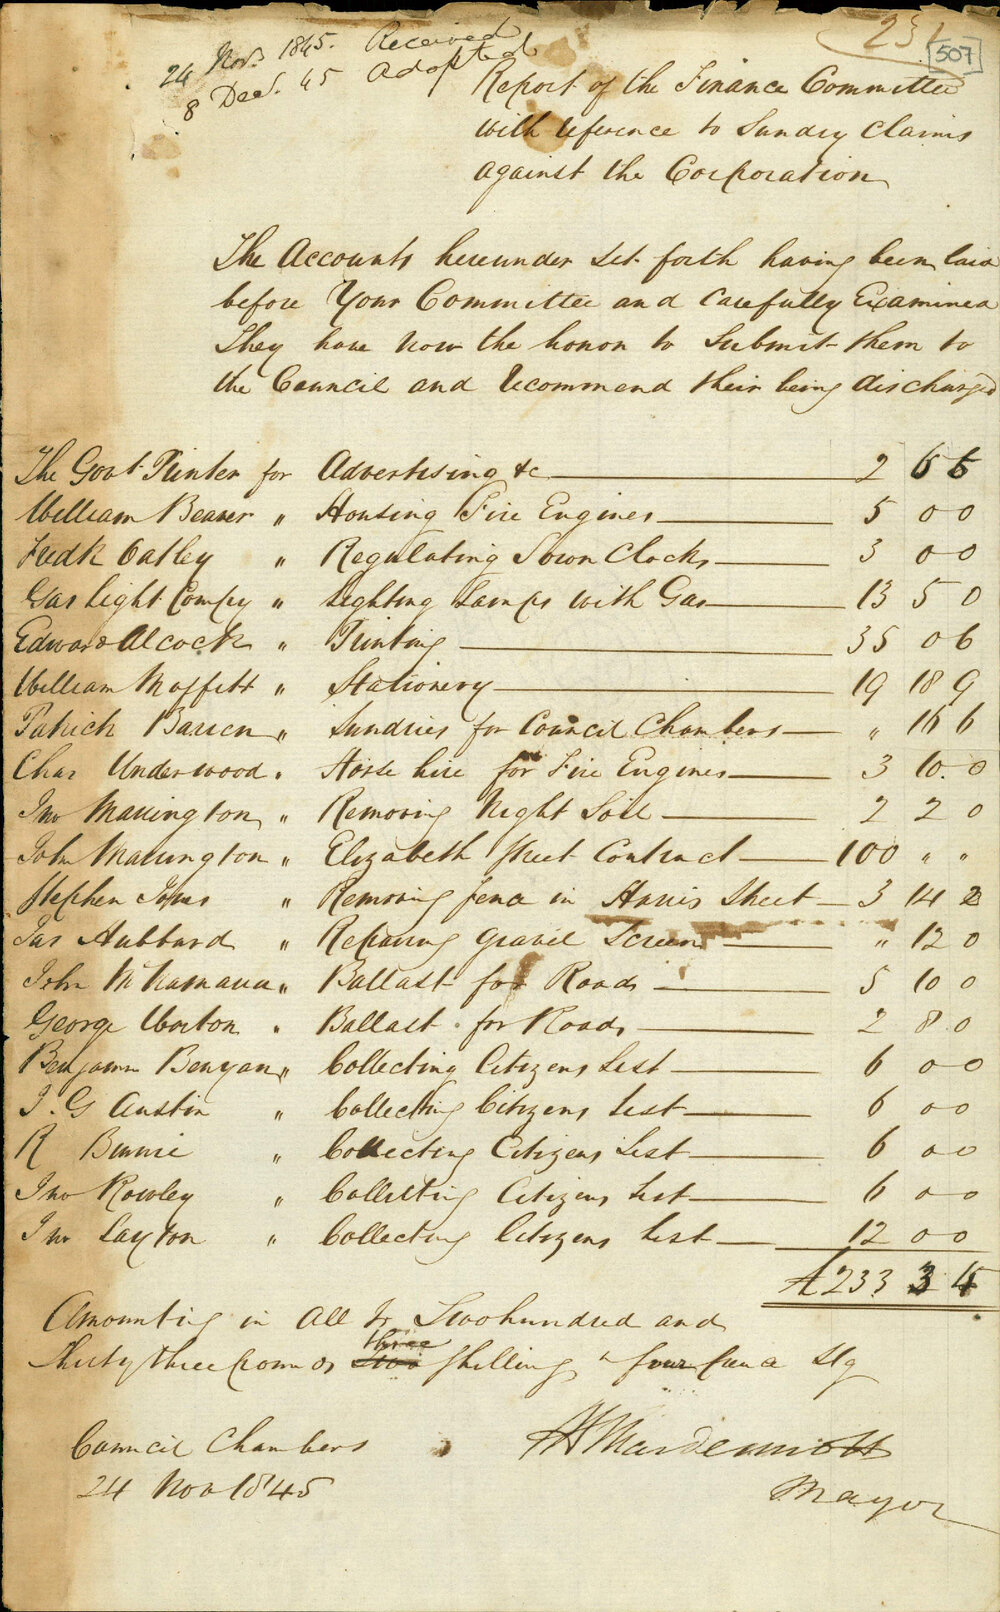 24 Nov. 1845. Received
8 Dec. 45 Adopted
231
507
Report of the Finance Committee
with reference to Sundry Claims
against the Corporation
The Accounts hereunder set forth having been laid
before Your Committee and Carefully Examined
They have now the honor to Submit them to
the Council and recommend their being discharged
The Govt Printer for Advertising &c 2 6 6
William Beaver " Housing Fire Engines 5 0 0
Fredk Oatley " Regulating Town Clocks 3 0 0
Gas Light Compy " Lighting Lamps with Gas 13 5 0
Edward Alcock " Printing 35 0 6
William Moffitt " Stationery 19 18 9
Patrick Barren " Sundries for Council Chambers " 16 6
Chas Underwood " Horse hire for Fire Engines 3 10 0
Jno Marrington " Removing Night Soil 2 2 0
John Marrington " Elizabeth Street Contract 100 " "
Stephen " Removing fence in Harris Street 3 14 2
Jas Hubbard " Repairing Gravel Screen " 12 0
John McNamara " Ballast for Roads 5 10 0
George Worton " Ballast for Roads 2 8 0
Benjamin Benyan " Collecting Citizens List 6 0 0
J. G Austin " Collecting Citizens List 6 0 0
R Binnie " Collecting Citizens List 6 0 0
Jno Rowley " Collecting Citizens List 6 0 0
Jno Laxton " Collecting Citizens List 12 0 0
£233 3
Amounting in all to Two hundred and
three
Thirty three pounds two shillings & four pence Stg
Council Chambers
24 Nov 1845
H Macdermott
Mayor